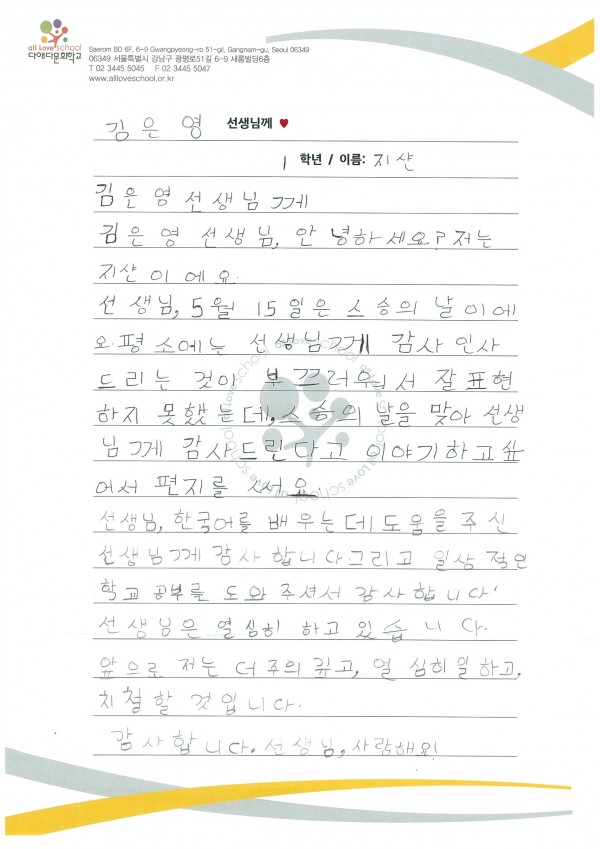 all Love School
다애다문화학교
Saerom BD 6F, 6-9 Gwangpyeong-ro 51-gil, Gangnam-gu, Seoul 06349
06349 서울특별시 강남구 광평로51길 6-9 새롬빌딩6층
T 02 3445 5045 F 02 3445 5047
www.alloveschool.or.kr
김은영 선생님께 ♥
1 학년 / 이름: 지샨
김은영선생님께
김은영 선생님, 안녕하세요? 저는
지샨이에요.
선생님, 5월 15일은 스승의 날이에
요. 평소에는 선생님께 감사 인사
드리는 것이 부끄러워서 잘 표현
하지 못했는데, 스승의 날을 맞아 선생
님께 감사드린다고 이야기하고싶
어서 편지를 써요.
선생님, 한국어를 배우는데 도움을 주신
선생님께 감사합니다 그리고 일상적인
학교 공부를 도와 주셔서 감사합니다'
선생님은 열심히 하고 있습니다.
앞으로 저는 더 주의 깊고, 열심히 일하고,
치철할 것입니다.
감사합니다. 선생님, 사랑해요!